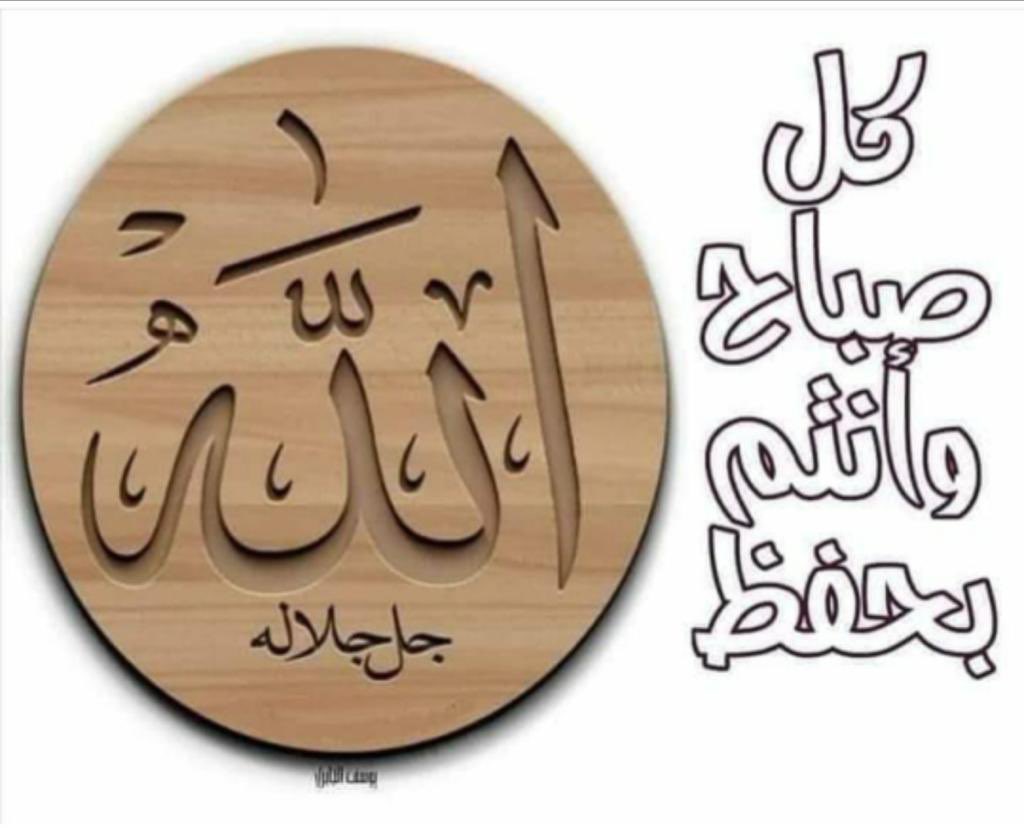 كل
صباح
وأنتم
بحفظ
الله
جل جلاله